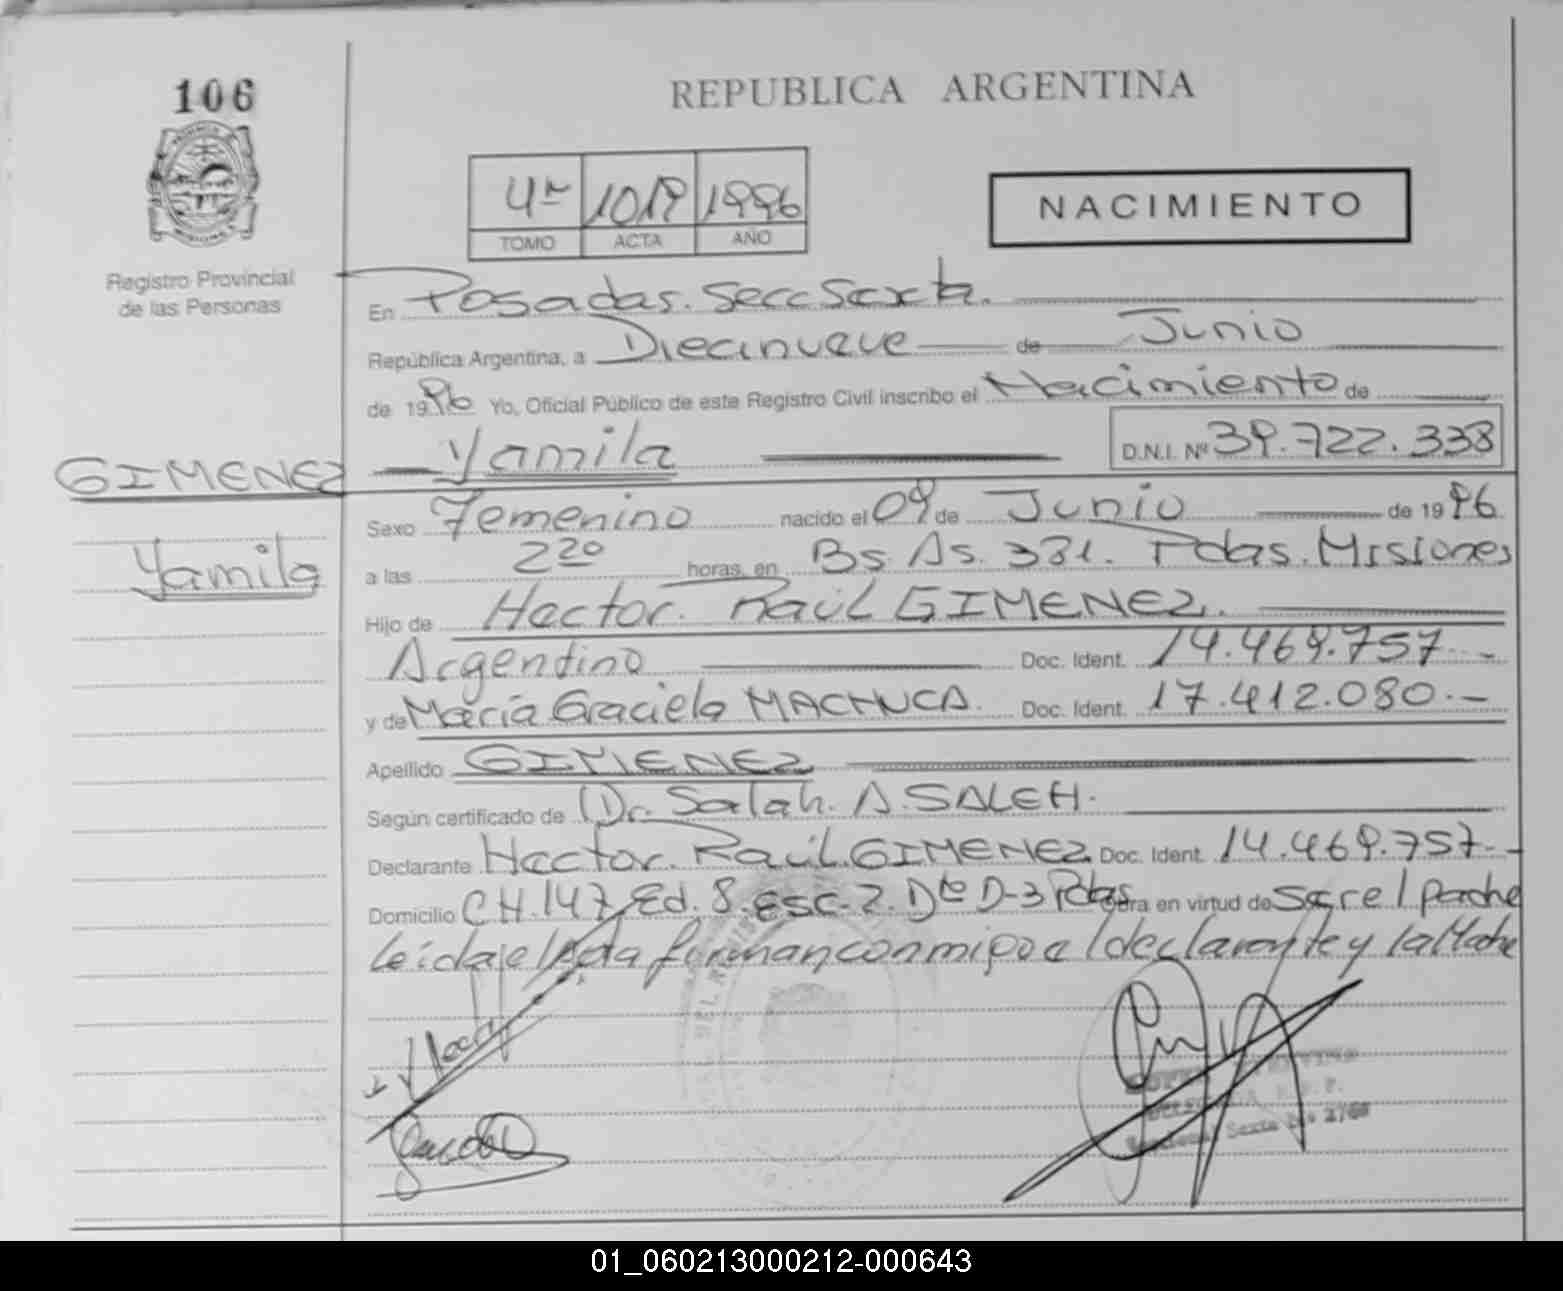 106
REPUBLICA ARGENTINA
4º 1019 1996
TOMO ACTA AÑO
NACIMIENTO
Registro Provincial
de las Personas
En Posadas. Secc Sexta.
República Argentina, a Diecinueve de Junio
de 1996 Yo, Oficial Público de este Registro Civil inscribo el Nacimiento de
Yamila D.N.I. Nº 39.722.338
GIMENEZ
Yamila
Sexo Femenino nacido el 09 de Junio de 1996
a las 2 20 horas, en Bs. As. 331. Pdas. Misiones
Hijo de Hector. Raúl GIMENEZ.
Argentino Doc. Ident. 14.469.757.-
y de María Graciela MACHUCA. Doc. Ident. 17.412.080.-
Apellido GIMENEZ
Según certificado de Dr. Salah. A. SALEH.
Declarante Hector. Raúl GIMENEZ Doc. Ident. 14.469.757.-
Domicilio CH. 147. Ed. 8. esc. 2. Dto D-3 Pdas Obra en virtud de ser el padre
Leída el Acta firman conmigo el declarante y la Madre
01_060213000212-000643